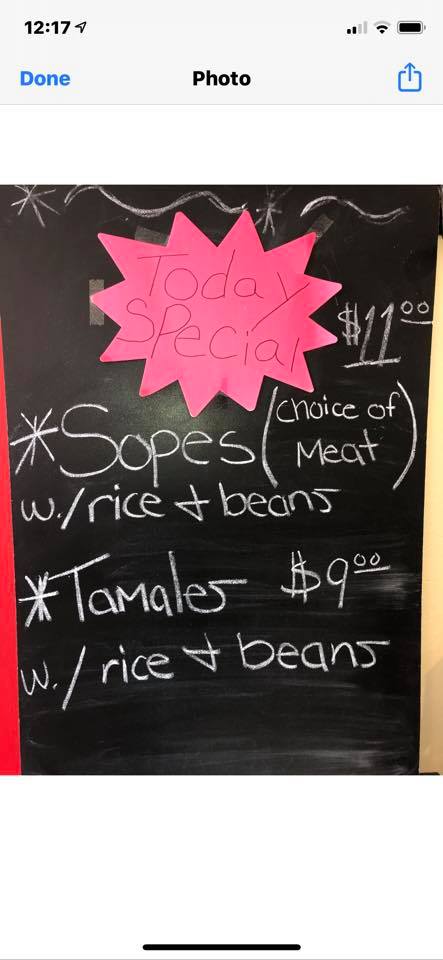 12:17
Done Photo
Today
Special
$11.00
*Sopes (choice of Meat)
w./rice & beans
*Tamales $9.00
w./ rice & beans